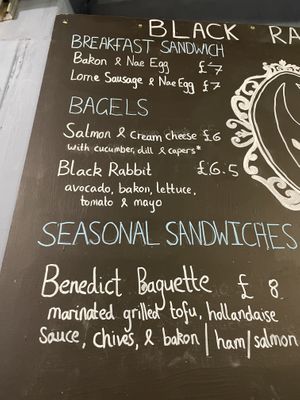 BLACK RA
BREAKFAST SANDWICH
Bakon & Nae Egg £7
Lorne Sausage & Nae Egg £7
BAGELS
Salmon & cream cheese £6
with cucumber, dill & capers*
Black Rabbit £6.5
avocado, bakon, lettuce,
tomato & mayo
SEASONAL SANDWICHES
Benedict Baguette £8
marinated grilled tofu, hollandaise
sauce, chives, & bakon/ham/salmon